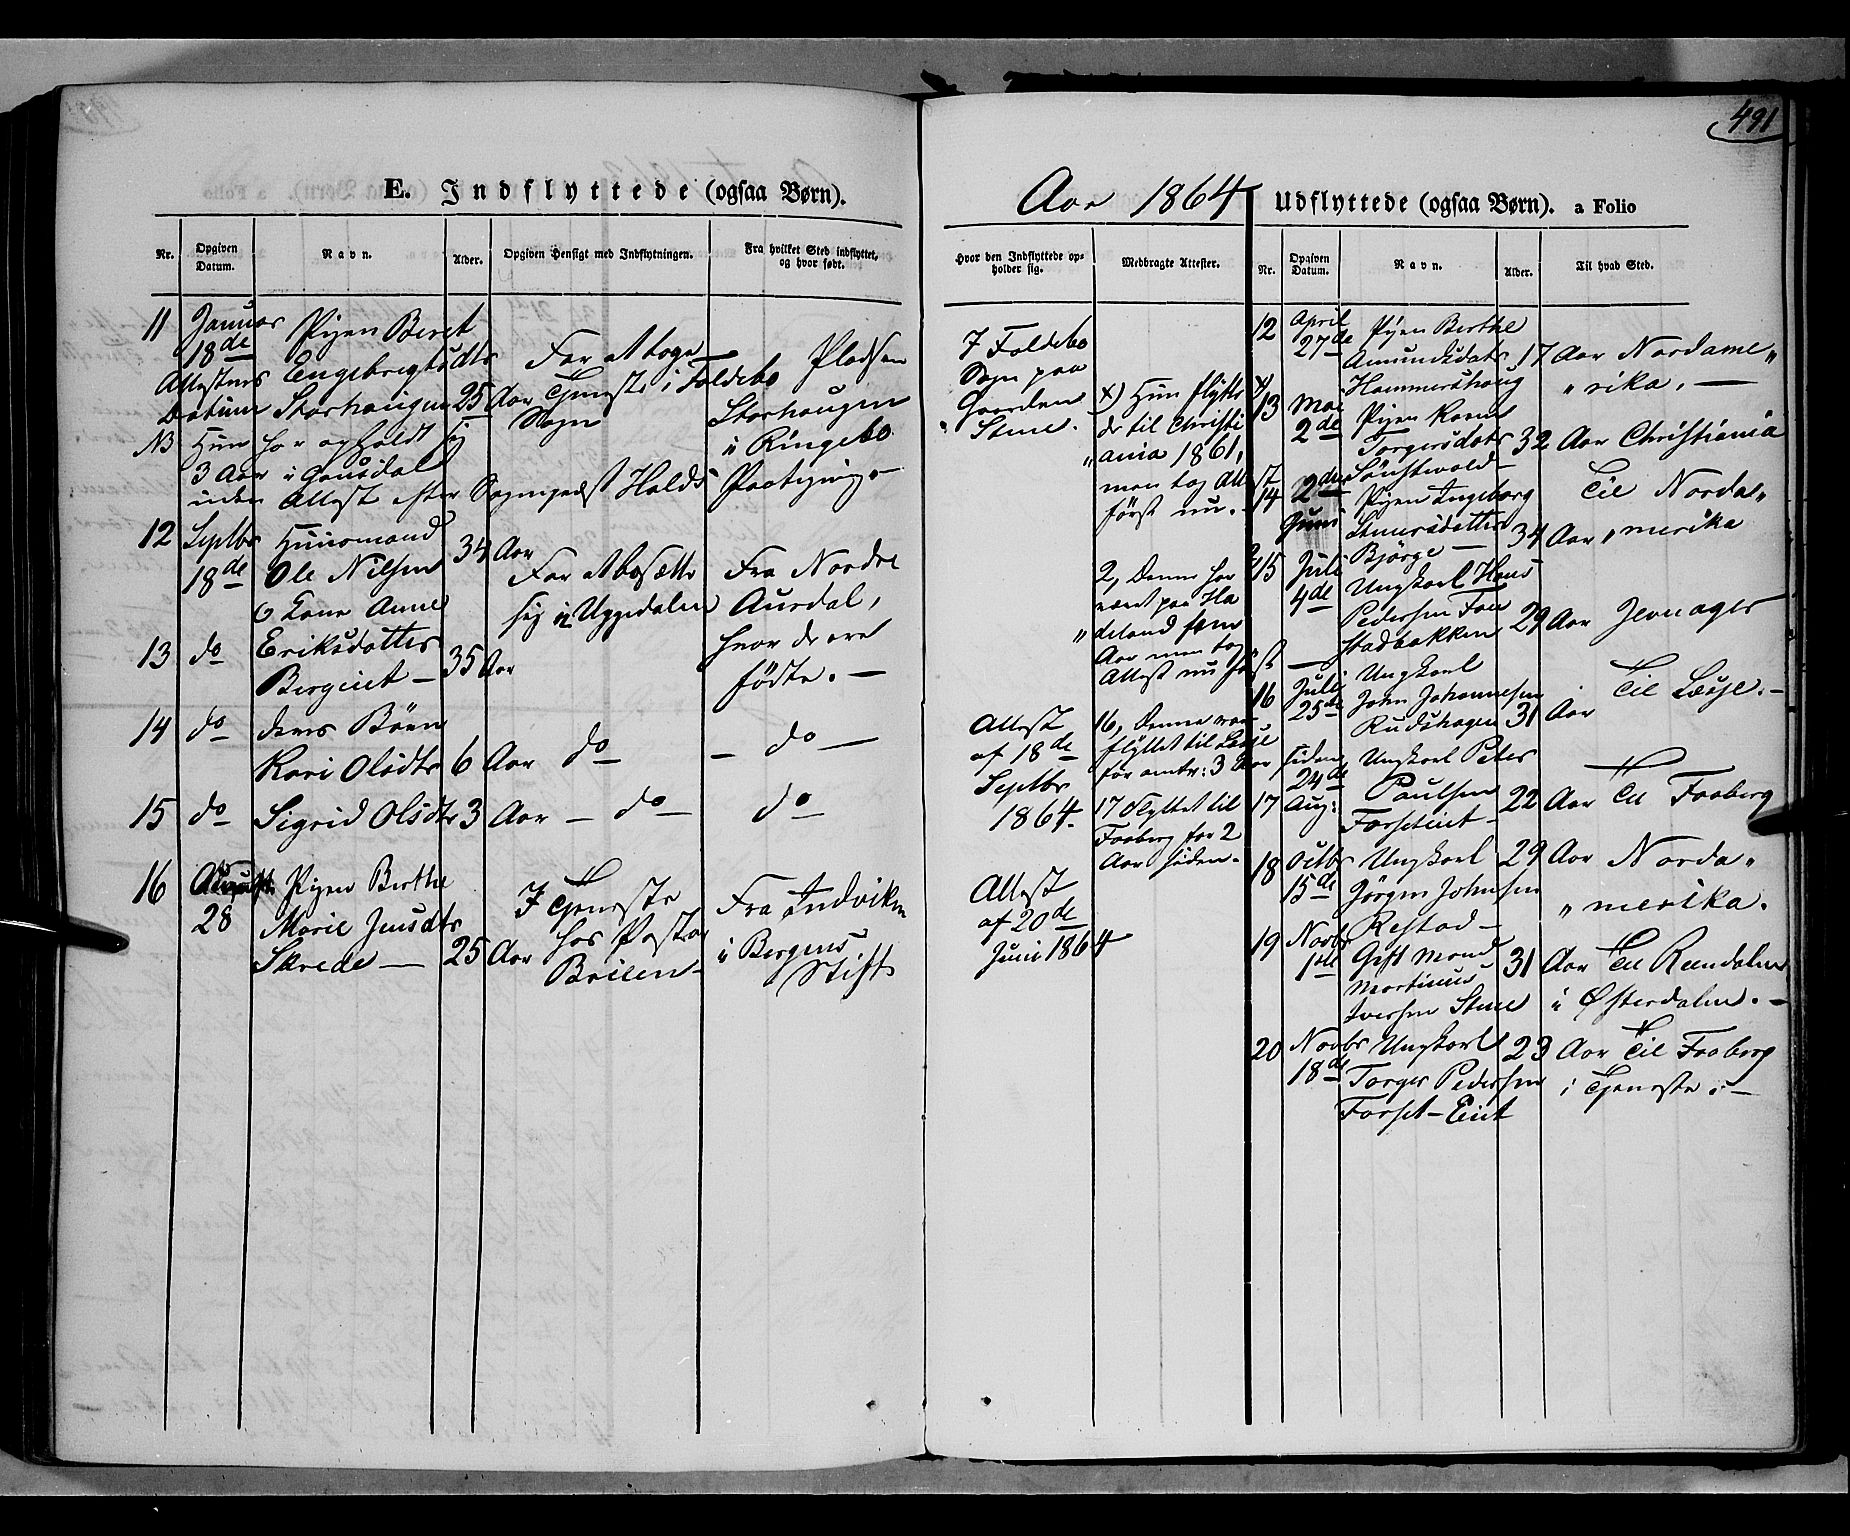 491
E. Indflyttede (ogsaa Børn).
Aar 1864
Udflyttede (ogsaa Børn). a Folio
Nr.
Opgiven Datum.
Navn.
Alder.
Opgiven Hensigt med Indflytningen.
Fra hvilket Sted indflyttet,
og hvor født.
Hvor den Indflyttede op-
holder sig.
Medbragte Attester.
Nr.
Opgiven Datum.
Navn.
Alder.
Til hvad Sted.
11 Januar Pigen Beret
18de Engebrigtsdtr For at tage Pladsen
Attestens Storhaugen 25 Aar Tjeneste i Foldebo Storhaugen
Datum Sogn i Ringebo
NB Hun har opholdt sig
3 Aar i Gausdal
uden Attest efter Sognepræst Holds Paategning.
I Foldebo
Sogn paa
Gaarden
Stene.
12 Septbr Huusmand 34 Aar
18de Ole Nilsen For at bosætte Fra Nordre
o Kone Anne sig i Uggedalen Aurdal,
13 do Eriksdatter 35 Aar hvor de ere
Bergeiet fødte.
14 do deres Børn
Kari Olsdtr 6 Aar do do
15 do Sigrid Olsdtr 3 Aar do do
Attest
af 18de
Septbr
1864
16 August Pigen Berthe I Tjeneste Fra Indviken
28 Marie Jensdtr hos Pastor i Bergens
Skrede 25 Aar Brieen Stift
Attest
af 20de
Juni 1864
x) Hun flytte
de til Christi
ania 1861,
men tog Attest
først nu.
2, Denne har
været paa Ha
deland fem
Aar men tog
Attest nu først
16, Denne var
flyttet til Lesje
for omtr: 3 Aar siden
17 Flyttet til
Faaberg for 2
Aar siden.
12 April Pigen Berthe
27de Amundsdatr 17 Aar Nordame
Hammershaug rika.
x) 13 Mai Pigen Karen
2de Torgersdatr 32 Aar Christiania
14 2den Pigen Ingeborg Til Norda
Juni Steensdatter 34 Aar merika
Bjørge
2, 15 Juli Ungkarl Hans
4de Pedersen
Stadbakken 29 Aar Jevnager
16 Juli Ungkarl
25de John Johannesen Til Lesje.
Rudshagen 31 Aar
24de Ungkarl Peter
17 Aug: Paulsen 22 Aar Til Faaberg
Forseteiet
18 Octbr Ungkarl 29 Aar Norda
15de Jørgen Johnsen merika.
Restad
19 Novbr Gift Mand
1ste Martinus 31 Aar Til Rendalen
Iversen Stene i Østerdalen.
20 Novbr Ungkarl 23 Aar Til Faaberg
18de Torger Pedersen i Tjeneste
Forset-Eiet